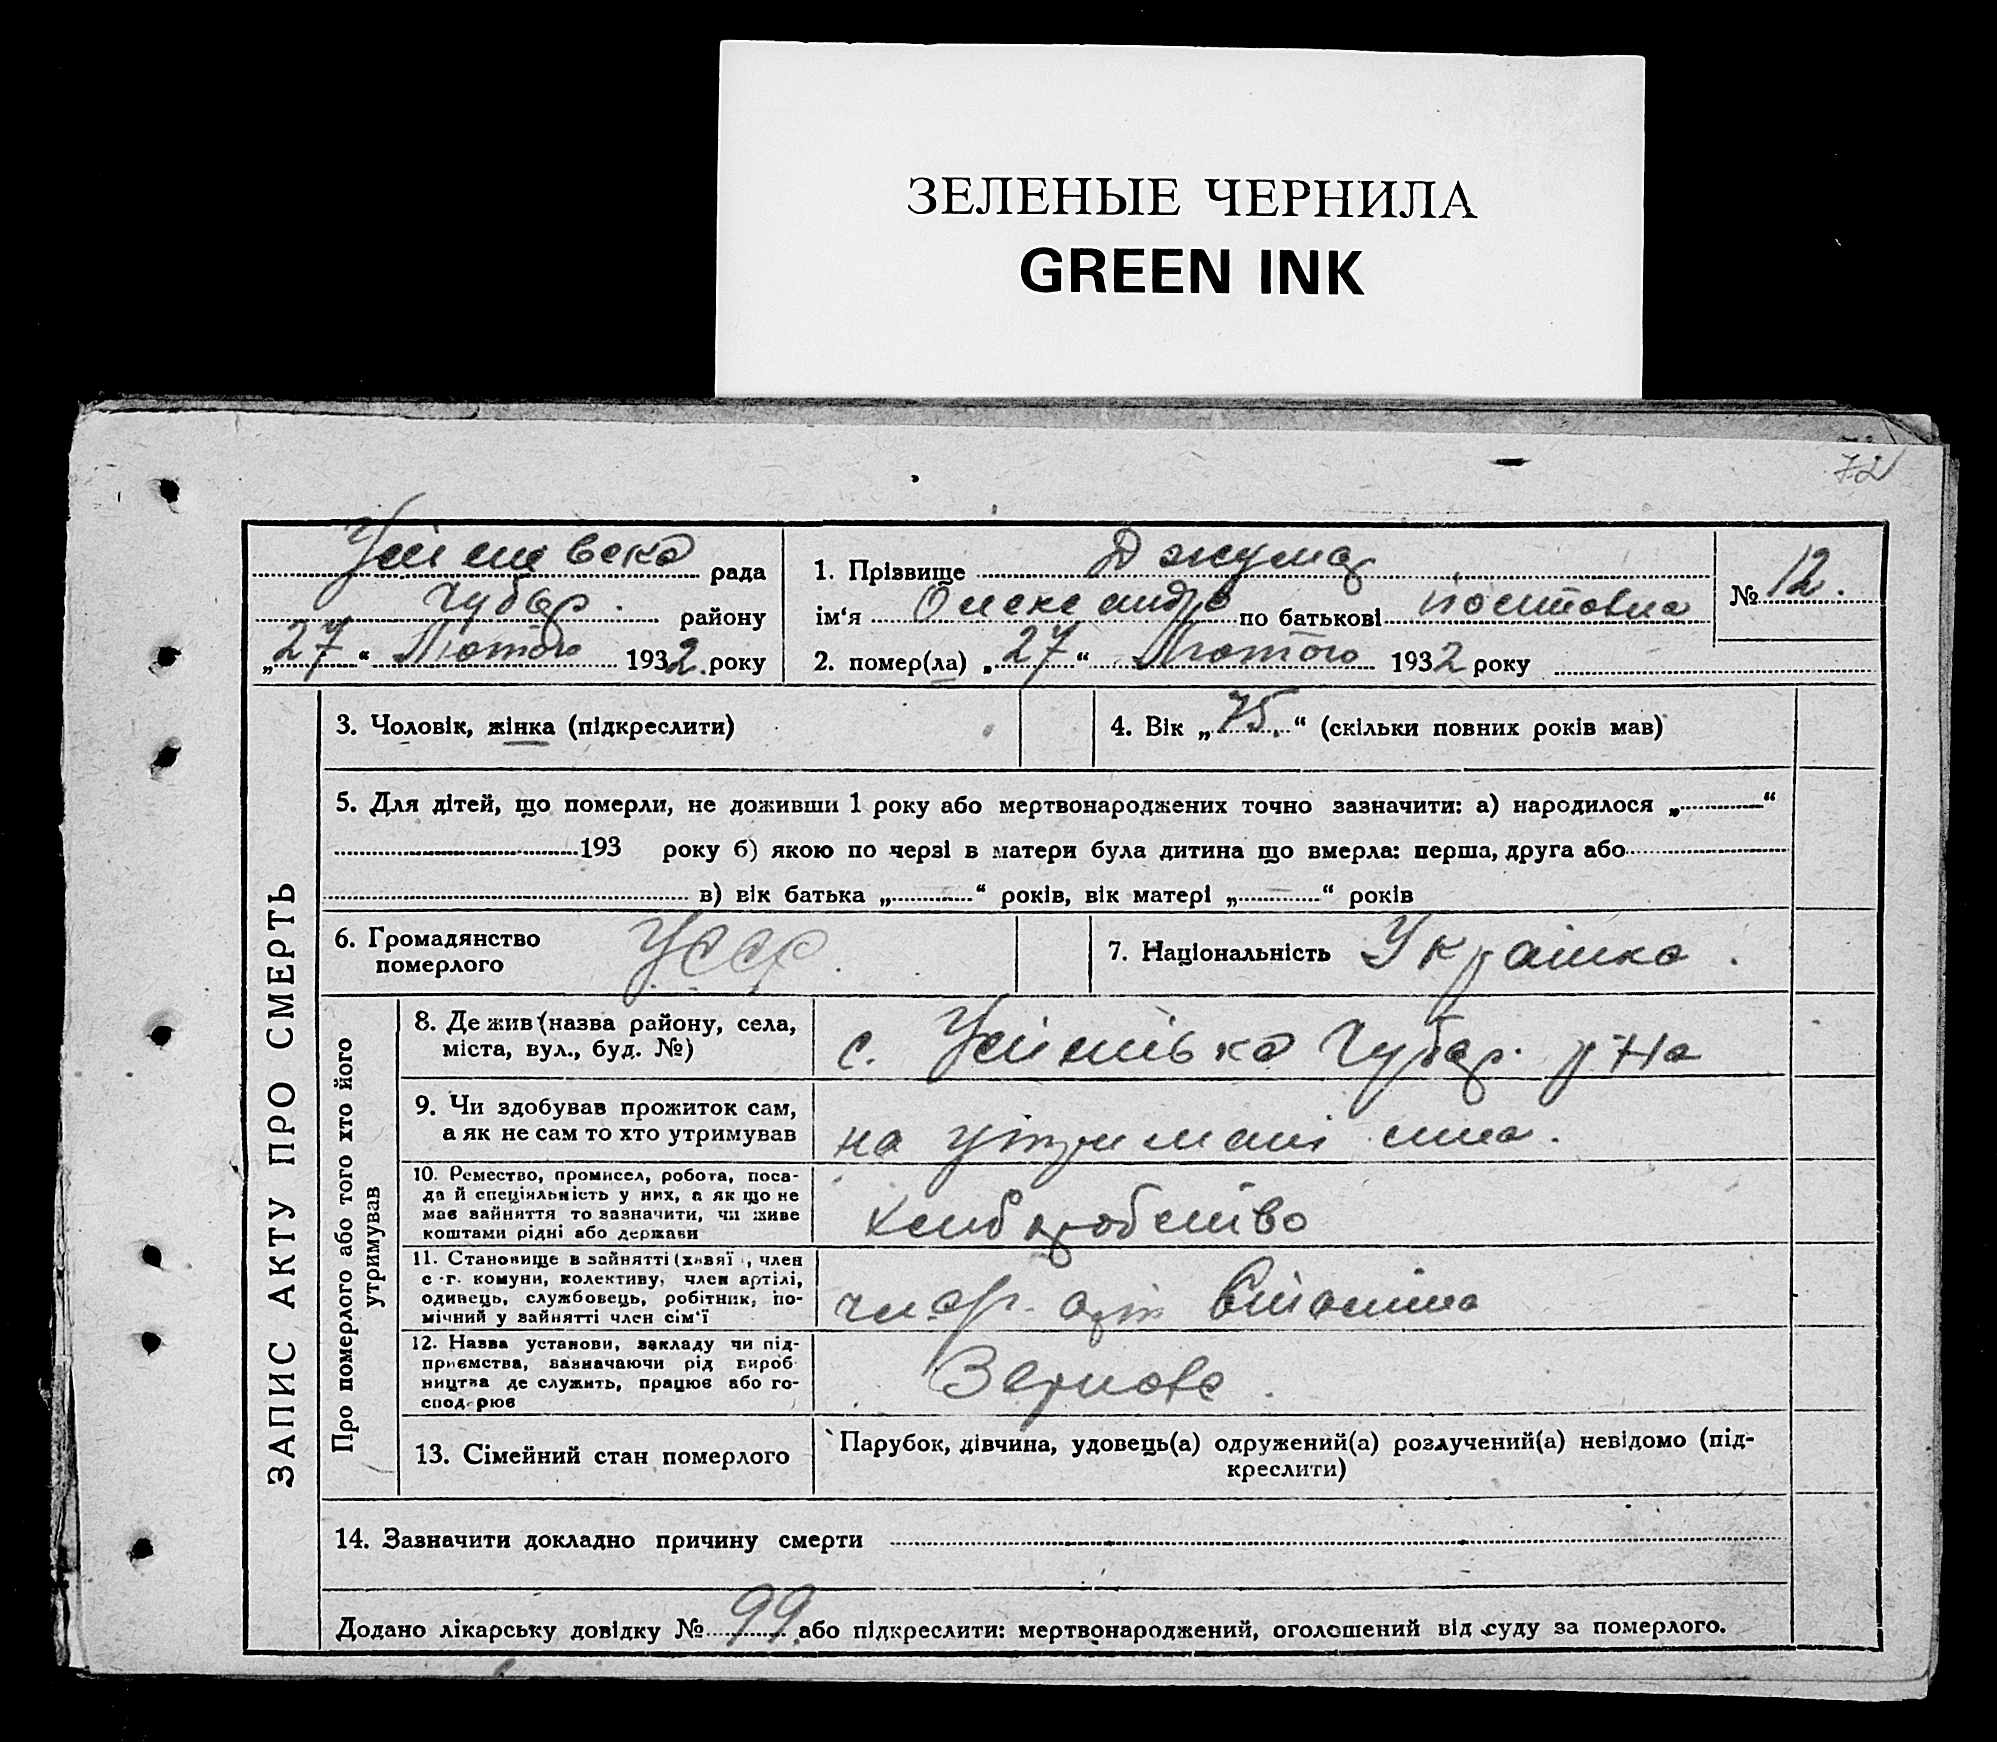 ЗЕЛЕНЫЕ ЧЕРНИЛА
GREEN INK
72
рада
Чубар. району
„27“ Лютого 1932. року
1. Прізвище Джума
ім‘я Олександра по батькові
2. помер(ла) „27“ Лютого 1932 року
№ 12.
ЗАПИС АКТУ ПРО СМЕРТЬ
3. Чоловік, жінка (підкреслити)
4. Вік „75.“ (скільки повних років мав)
5. Для дітей, що померли, не доживши 1 року або мертвонароджених точно зазначити: а) народилося „ “
193 року б) якою по черзі в матери була дитина що вмерла: перша, друга або
в) вік батька „ “ років, вік матері „ “ років
6. Громадянство
померлого
УССР.
7. Національність Українка.
Про померлого або того хто його
утримував
8. Де жив (назва району, села,
міста, вул., буд. №)
с. Чубар. р-на
9. Чи здобував прожиток сам,
а як не сам то хто утримував
на утримані сина.
10. Ремество, промисел, робота, поса-
да й спеціяльність у них, а як що не
має зайняття то зазначити, чи живе
коштами рідні або держави
хліборобство
11. Становище в зайнятті (хазяї, член
с.-г. комуни, колективу, член артілі,
одинець, службовець, робітник, по-
мічний у зайнятті член сім‘ї
арт Сталіна
12. Назва установи, закладу чи під-
приємства, зазначаючи рід вироб-
ництва де служить, працює або го-
сподарює
Зернове.
13. Сімейний стан померлого
Парубок, дівчина, удовець(а) одружений(а) розлучений(а) невідомо (під-
креслити)
14. Зазначити докладно причину смерти
Додано лікарську довідку № 99. або підкреслити: мертвонароджений, оголошений від суду за померлого.